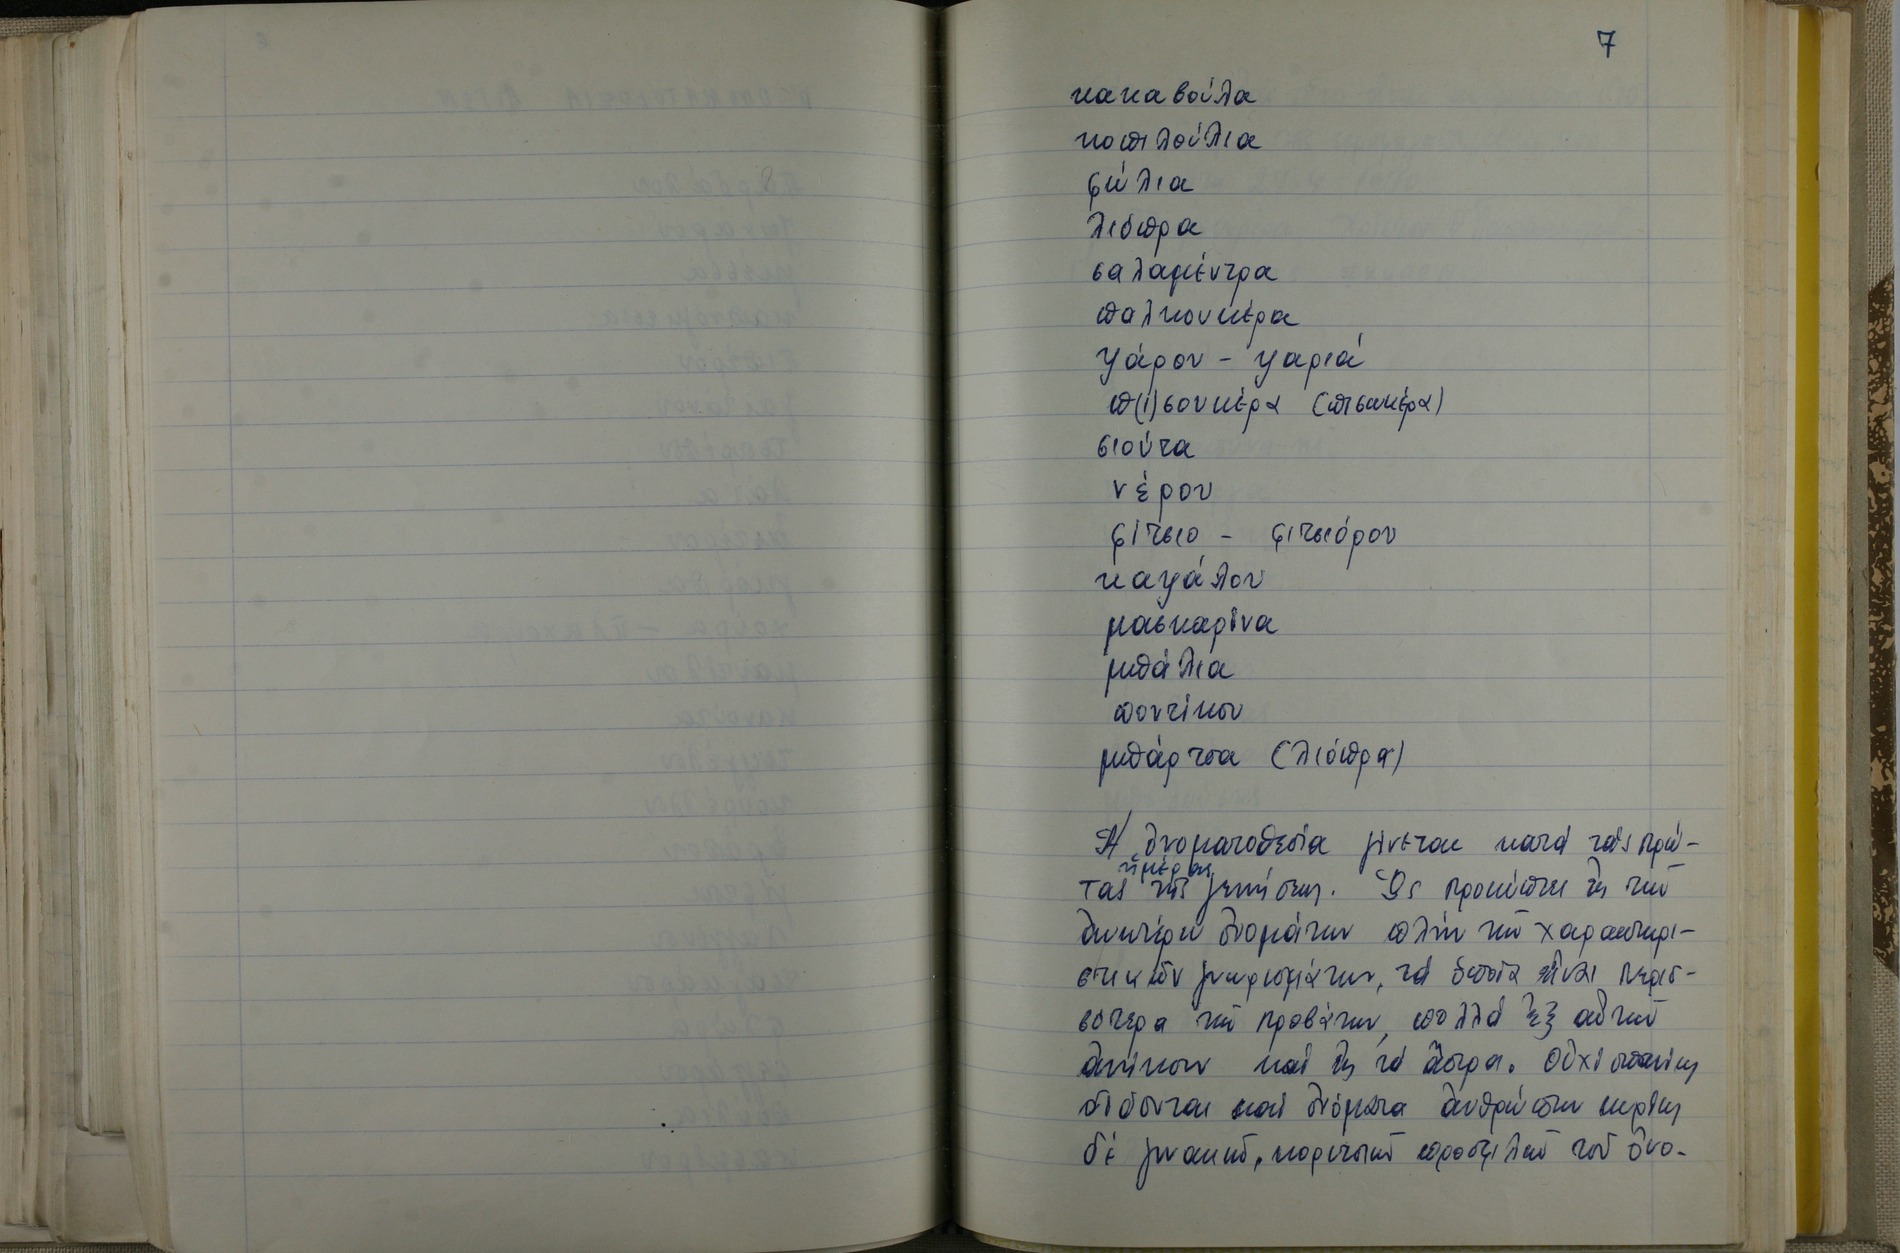 7
κακαβούλα
κοπιλούλια
φώλια
λιόπρα
σαλαμέντρα
παλκουκέρα
ψάρου - ψαριά
π(ι)σουκέρα (πισωκέρα)
σιούτα
νέρου
φίτσιο - φιτσιόρου
καψάλου
μασκαρίνα
μπάλια
ποντίκου
μπάρτσα (λιόπρα)
Ἡ ὀνοματοθεσία γίνεται κατά τάς πρώ-
τας ἡμέρας τῆς γεννήσεως. Ὡς προκύπτει ἐκ τῶν
ἀνωτέρω ὀνομάτων πλήν τῶν χαρακτηρι-
στικῶν γνωρισμάτων, τά ὁποῖα εἶναι περισ-
σότερα τῶν προβάτων, πολλά ἐξ αὐτῶν
ἀνήκουν καί εἰς τά ἄστρα. Οὐχί σπανίως
δίδονται καί ὀνόματα ἀνθρώπων κυρίως
δέ γυναικῶν, κοριτσιῶν προσφιλῶν τοῦ ὀνο-